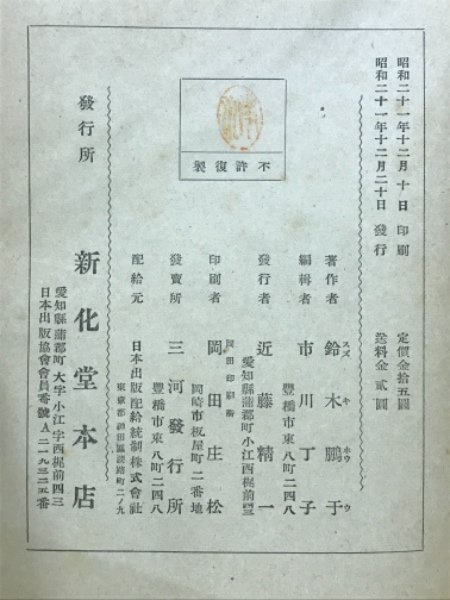 昭和二十一年十二月 十 日 印刷
昭和二十一年十二月二十日 發行
定價金拾五圓
送料金貳圓
不許復製
著作者 鈴木鵬于
スズ キ ホウ ウ
編輯者 市川丁子
豐橋市東八町二四八
發行者 近藤精一
愛知縣蒲郡町小江西梶前四三
印刷者 岡田庄松
岡田印刷所
岡崎市板屋町二番地
發賣所 三河發行所
豐橋市東八町二四八
配給元 日本出版配給統制株式會社
東京都神田區淡路町二ノ九
發行所 新化堂本店
愛知縣蒲郡町大字小江字西梶前四三
日本出版協會會員番號A二一九三二五番